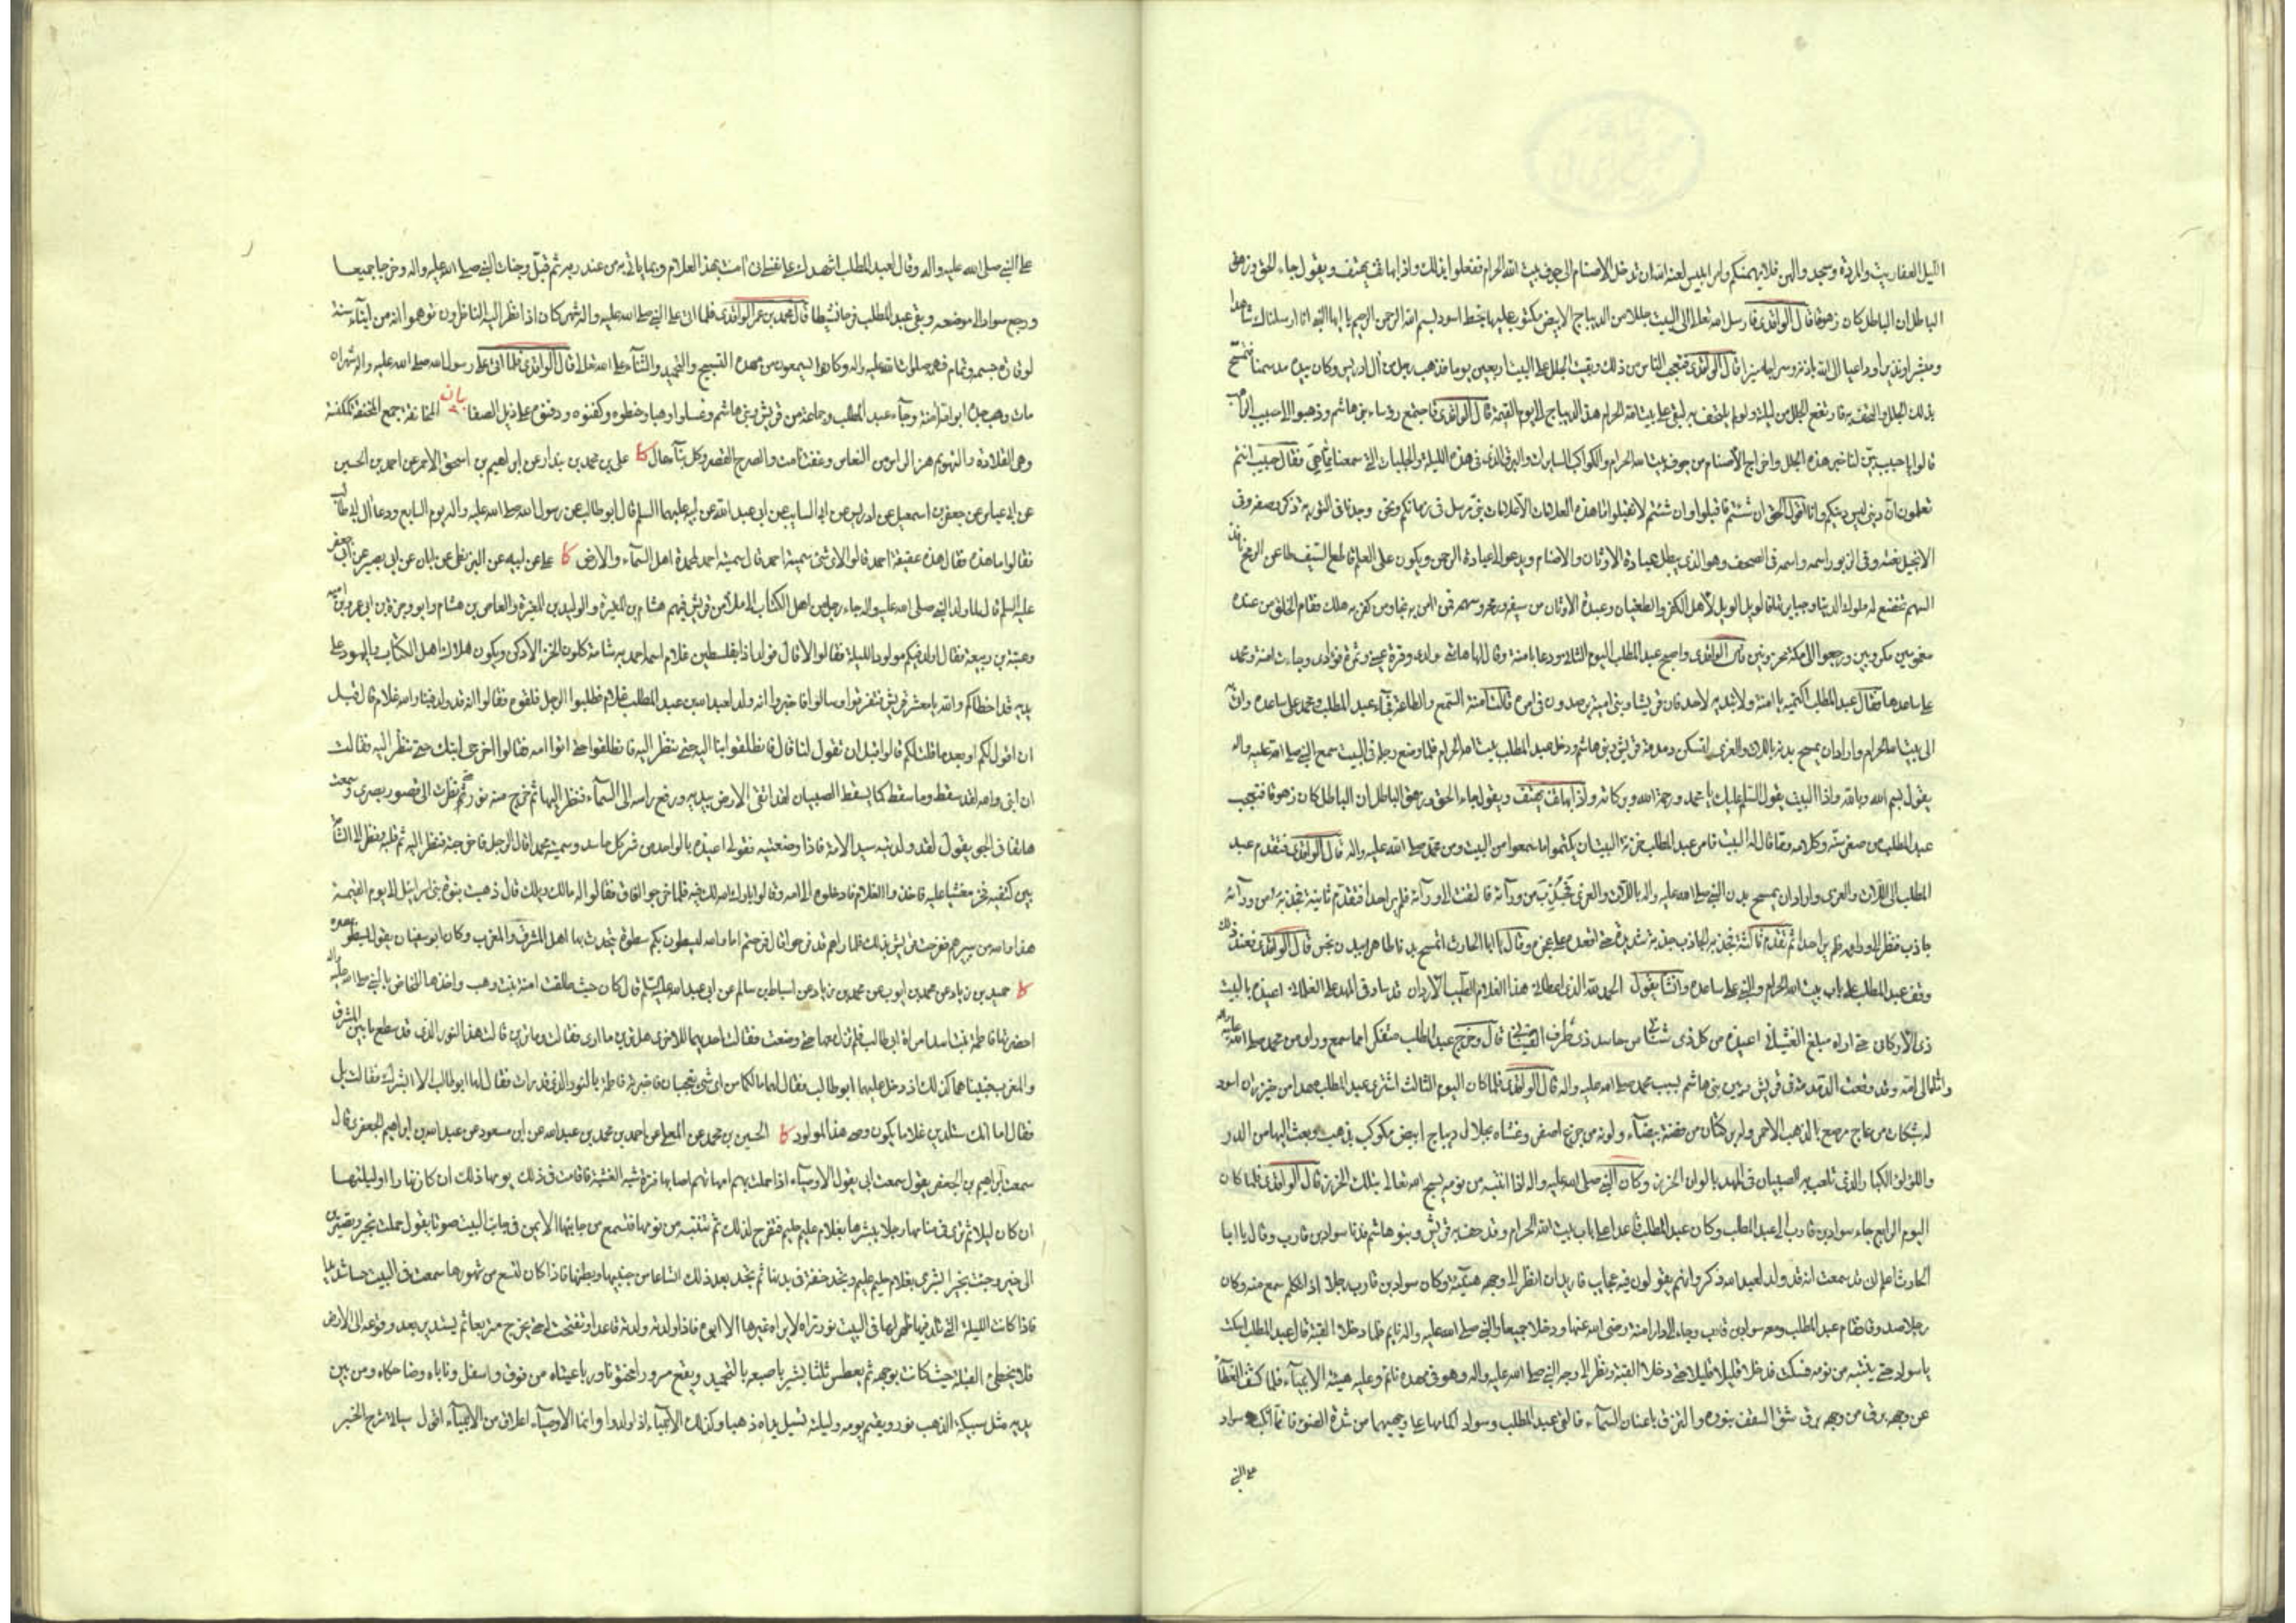 الليل العفاريت والمردة وسجد والهى فلا يهمنكم وامر ابليس لعنه الله ان تدخل الاصنام الى جوف بيت الله الحرام ففعلوا ذلك واذا بهاتف يهتف ويقول جاء الحق وزهق
الباطل ان الباطل كان زهوقا قال الواقدى فارسل الله تعالى الى البيت جللا من الديباج الابيض مكتوب عليها بخط اسود بسم الله الرحمن الرحيم يا ايها النبى انا ارسلناك شاهدا
ومبشرا ونذيرا وداعيا الى الله باذنه وسراجا منيرا قال الواقدى فتعجب الناس من ذلك وبقيت الجلل على البيت اربعين يوما فذهب رجل من آل ادريس وكان بيده مد سمنا فتمسح
بذلك الجلل والتحف به فارتفع الجلل من ليلته ولو لم يلتحف به لبقى على بيت الله الحرام هذا الديباج الى يوم القيمة قال الواقدى فاجتمع رؤساء بنى هاشم وذهبوا الى حبيب الراهب
قالوا يا حبيب بين لنا خبر هذه الجلل واخراج الاصنام من جوف بيت الله الحرام والكواكب السايرات والبرق الذى فى هذه الليلة والجلبات التى سمعنا ما هى فقال حبيب انتم
تعلمون ان دينى ليس دينكم وانا اقول الحق ان شئتم فاقبلوا وان شئتم لا تقبلوا ما هذه العلامات الا علامات نبى مرسل فى زمانكم ونحن وجدنا فى التورية ذكر وصفه وفى
الانجيل نعته وفى الزبور اسمه واسمه فى الصحف وهو الذى يبطل عبادة الاوثان والاصنام ويدعو الى عبادة الرحمن ويكون على العالم قاطع السيف طاعن الرمح نافذ
السهم تخضع له ملوك الدنيا وجبابرتها فالويل الويل لاهل الكفر والطغيان وعبدة الاوثان من سيفه ورمحه وسهمه فمن آمن به نجا ومن كفر به هلك فقام الخلق من عنده
مغمومين مكروبين ورجعوا الى مكة محزونين قال الواقدى واصبح عبد المطلب اليوم الثانى ودعا بامنة وقال لها هاتى ولدى وقرة عينى وثمرة فؤادى فجاءت امنة ومحمد
على ساعدها فقال عبد المطلب اكتميه يا امنة ولا تبديه لاحد فان قريشا وبنى امية يرصدون فى امره قالت امنة السمع والطاعة فجاء عبد المطلب ومحمد على ساعده واتى به
الى بيت الله الحرام واراد ان يمسح بدنه باللات والعزى لتسكن دمدمة قريش وبنى هاشم ودخل عبد المطلب بيت الله الحرام فلما وضع رجله فى البيت سمع النبى صلى الله عليه واله
يقول بسم الله وبالله واذا البيت يقول السلام عليك يا محمد ورحمة الله وبركاته واذا بهاتف يهتف ويقول جاء الحق وزهق الباطل ان الباطل كان زهوقا فتعجب
عبد المطلب من صغر سنه وكلامه ومما قال له البيت فامر عبد المطلب خزنة البيت ان يكتموا ما سمعوا من البيت ومن محمد صلى الله عليه واله قال الواقدى فتقدم عبد
المطلب الى اللات والعزى واراد ان يمسح بدن النبى صلى الله عليه واله باللات والعزى فجذب من ورائه فالتفت الى ورائه فلم ير احدا فتقدم ثانية فجذبه من ورائه
جاذب فنظر الى ورائه فلم ير احدا ثم تقدم ثالثة فجذبه الجاذب جذبة شديدة حتى اقعده على عجزه وقال يا ابا الحارث اتمسح بدنا طاهرا ببدن نجس قال الواقدى فعند ذلك
وقف عبد المطلب على باب بيت الله الحرام والنبى على ساعده وانشا يقول الحمد لله الذى اعطانى هذا الغلام الطيب الاردان قد ساد فى المهد على الغلمان اعيذه بالبيت
ذى الاركان حتى اراه مبلغ الغشيان اعيذه من كل ذى شنآن من حاسد ذى طرف العينان قال وخرج عبد المطلب متفكرا مما سمع وراى من محمد صلى الله عليه واله
واتى الى امه وقد وقعت الدمدمة فى قريش وبين بنى هاشم بسبب محمد صلى الله عليه واله قال الواقدى فلما كان اليوم الثالث اشترى عبد المطلب مهدا من خيزران اسود
له شبكات من عاج مرصع بالذهب الاحمر وله بركتان من فضة بيضاء ولونه من جزع اصفر وغشاه بجلال ديباج ابيض مكوكب بذهب وبعث اليها من الدر
واللؤلؤ الكبار الذى تلعب به الصبيان فى المهد بالوان الخرز وكان النبى صلى الله عليه واله اذا انتبه من نومه يسبح الله تعالى بتلك الخرز قال الواقدى فلما كان
اليوم الرابع جاء سواد بن قارب الى عبد المطلب وكان عبد المطلب قاعدا على باب بيت الله الحرام وقد حف به قريش وبنو هاشم فدنا سواد بن قارب وقال يا ابا
الحارث اعلم انى قد سمعت انه قد ولد لعبد الله ذكر وانهم يقولون فيه عجايب فاريد ان انظر الى وجهه هنيئة وكان سواد بن قارب رجلا اذا تكلم سمع منه وكان
رجلا صدوقا فقام عبد المطلب ومعه سواد بن قارب وجاء الى دار امنة رضى الله عنها ودخلا جميعا والنبى صلى الله عليه واله نايم فلما دخلا القبة قال عبد المطلب اسكت
يا سواد حتى ينتبه من نومه فسكت فدخلا قليلا قليلا حتى دخلا القبة ونظر الى وجه النبى صلى الله عليه واله وهو فى مهده نائم وعليه هيئة الانبياء فلما كشف الغطآء
عن وجهه برق من وجهه برق شق السقف بنوره والتزق باعنان السماء فالقى عبد المطلب وسواد اكمامهما على وجهيهما من شدة الضوء فانكب سواد
على النبى
على النبى صلى الله عليه واله وقال لعبد المطلب اشهدك على نفسى انى آمنت بهذا الغلام وبما ياتى به من عند ربه ثم قبل وجنات النبى صلى الله عليه واله وخرجا جميعا
ورجع سواد الى موضعه وبقى عبد المطلب فرحا نشيطا قال محمد بن عمر الواقدى فلما اتى على النبى صلى الله عليه واله شهر كان اذا نظر اليه الناظرون توهموا انه من ابناء سنة
لوقارة جسمه وتمام فهمه صلوات الله عليه واله وكانوا يسمعون من مهده التسبيح والتحميد والثناء على الله تعالى قال الواقدى فلما اتى على رسول الله صلى الله عليه واله شهران
مات وهب جده ابو امه آمنة وجاء عبد المطلب وجماعة من قريش وبنى هاشم وغسلوا وهبا وحنطوه وكفنوه ودفنوه على ذيل الصفا بيان المخانقة جمع المخنقة كمكنسة
وهى القلادة والتهويم هز الراس من النعاس وغفت نامت والصرح القصر وكل بناء عال كا على بن محمد بن بندار عن ابراهيم بن اسحق الاحمر عن احمد بن الحسين
عن ابى عباس عن جعفر بن اسمعيل عن ادريس عن ابى السايب عن ابى عبد الله عن ابيه عليهما السلم قال ابو طالب عن رسول الله صلى الله عليه واله يوم السابع ودعا آل ابى طالب
فقالوا ما هذه فقال هذه عقيقة احمد قالوا لاى شئ سميته احمد قال سميته احمد لمحمدة اهل السماء والارض كا على عن ابيه عن البزنطى عن ابان عن ابى بصير عن ابى جعفر
عليه السلم قال لما ولد النبى صلى الله عليه واله جاء رجل من اهل الكتاب الى ملأ من قريش فيهم هشام بن المغيرة والوليد بن المغيرة والعاص بن هشام وابو وجزة بن ابى عمرو بن امية
وعتبة بن ربيعة فقال اولد فيكم مولود الليلة فقالوا لا قال فولد اذا بفلسطين غلام اسمه احمد به شامة كلون الخز الادكن ويكون هلاك اهل الكتاب واليهود على
يديه قد اخطاكم والله يا معشر قريش فتفرقوا وسالوا فاخبروا انه ولد لعبد الله بن عبد المطلب غلام فطلبوا الرجل فلقوه فقالوا انه قد ولد فينا والله غلام قال قبل
ان اقول لكم او بعد ما قلت لكم قالوا قبل ان تقول لنا قال فانطلقوا بنا اليه حتى ننظر اليه فانطلقوا حتى اتوا امه فقالوا اخرجى ابنك حتى ننظر اليه فقالت
ان ابنى والله لقد سقط وما سقط كما يسقط الصبيان لقد اتقى الارض بيديه ورفع راسه الى السماء فنظر اليها ثم خرج منه نور حتى نظرت الى قصور بصرى وسمعت
هاتفا فى الجو يقول لقد ولدتيه سيد الامة فاذا وضعتيه فقولى اعيذه بالواحد من شر كل حاسد وسميه محمدا قال الرجل فاخرجيه فنظر اليه ثم قلبه ونظر الى الشامة
بين كتفيه فخر مغشيا عليه فاخذوا الغلام فادخلوه الى امه وقالوا بارك الله لك فيه فلما خرجوا افاق فقالوا له مالك ويلك قال ذهبت نبوة بنى اسرائيل الى يوم القيمة
هذا والله من يبيرهم ففرحت قريش بذلك فلما راهم قد فرحوا قال فرحتم اما والله ليسطون بكم سطوة يتحدث بها اهل المشرق والمغرب وكان ابو سفيان يقول يسطو بمصره
كا حميد بن زياد عن محمد بن ايوب عن محمد بن زياد عن اسباط بن سالم عن ابى عبد الله عليه السلم قال كان حيث طلقت امنة بنت وهب واخذها المخاض بالنبى صلى الله عليه واله
احضرتها فاطمة بنت اسد امراة ابى طالب فلم تزل معها حتى وضعت فقالت احديهما للاخرى هل ترين ما ارى فقالت وما ترين قالت هذا النور الذى قد سطع ما بين المشرق
والمغرب فبينا هما كذلك اذ دخل عليهما ابو طالب فقال لهما ما لكما من اى شئ تعجبان فاخبرته فاطمة بالنور الذى قد رات فقال لها ابو طالب الا ابشرك فقالت بلى
فقال اما انك ستلدين غلاما يكون وصى هذا المولود كا الحسين بن محمد عن المعلى عن احمد بن محمد بن عبد الله عن ابن مسعود عن عبد الله بن ابراهيم الجعفرى قال
سمعت ابراهيم بن الجعفر يقول سمعت ابى يقول الاوصياء اذا حملت بهم امهاتهم اصابها فترة شبه الغشية فاقامت فى ذلك يومها ذلك ان كان نهارا او ليلتها
ان كان ليلا ثم ترى فى منامها رجلا يبشرها بغلام عليم حليم فتفرح لذلك ثم تنتبه من نومها فتسمع من جانبها الايمن فى جانب البيت صوتا يقول حملت بخير وتصيرين
الى خير وجئت بخير ابشرى بغلام حليم عليم وتجد خفة فى بدنها ثم تجد بعد ذلك اتساعا من جنبيها وبطنها فاذا كان لتسع من شهورها سمعت فى البيت حسا شديدا
فاذا كانت الليلة التى تلد فيها ظهر لها فى البيت نور تراه لا يراه غيرها الا ابوه فاذا ولدته ولدته قاعدا وتفتحت له حتى يخرج متربعا ثم يستدير بعد وقوعه الى الارض
فلا يخطئ القبلة حيث كانت بوجهه ثم يعطس ثلثا يشير باصبعه بالتحميد ويقع مسرورا مختونا ورباعيتاه من فوق واسفل وناباه وضاحكاه ومن بين
يديه مثل سبيكة الذهب نور ويقيم يومه وليلته تسيل يداه ذهبا وكذلك الانبياء اذا ولدوا وانما الاوصياء اعلاق من الانبياء اقول سياتى شرح الخبر